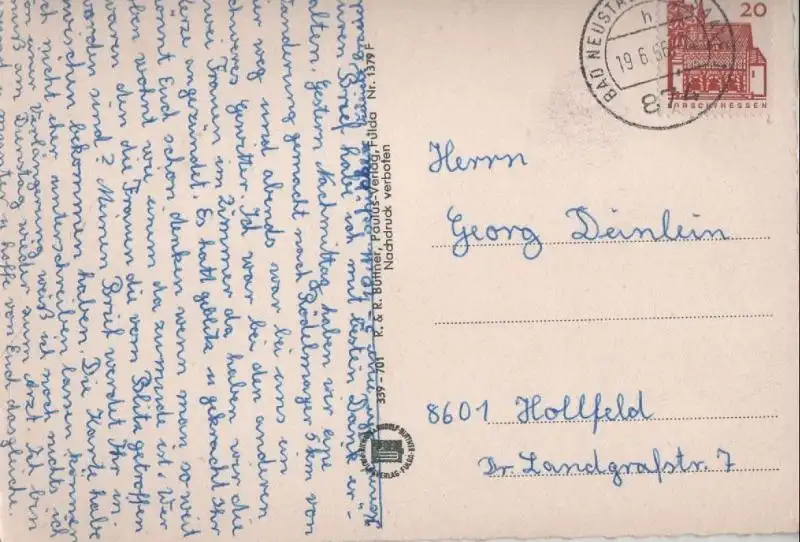 20
BAD NEUSTADT
19.6.66
874
LORSCH/HESSEN
Herrn
Georg Deinlein
8601 Hollfeld
Dr. Landgrafstr. 7
339 - 701 R. & R. Büttner, Paulus-Verlag, Fulda Nr. 1379 F
Nachdruck verboten
euren Brief habe ich mit besten Dank er-
halten. Gestern Nachmittag haben wir eine
Wanderung gemacht nach Rödelmaier 5 km von
hier weg und abends war bei uns ein
schweres Gewitter. Ich war bei den anderen
zwei Frauen im Zimmer da haben wir die
Kerze angezündet. Es hatt geblitz u gekracht Ihr
könnt Euch schon denken wenn man so weit
oben wohnt wie einem da zumunde ist. Wer
waren den die Frauen die vom Blitz getroffen
worden sind? Meinen Brief werdet Ihr in-
zwischen bekommen haben. Die Karte habe
ich nicht eher unterschreiben lassen können
Verlängerung weiß ich noch nichts ich
muß am Dienstag wieder zum Arzt. Ich bin
u hoffe von Euch dasgleich